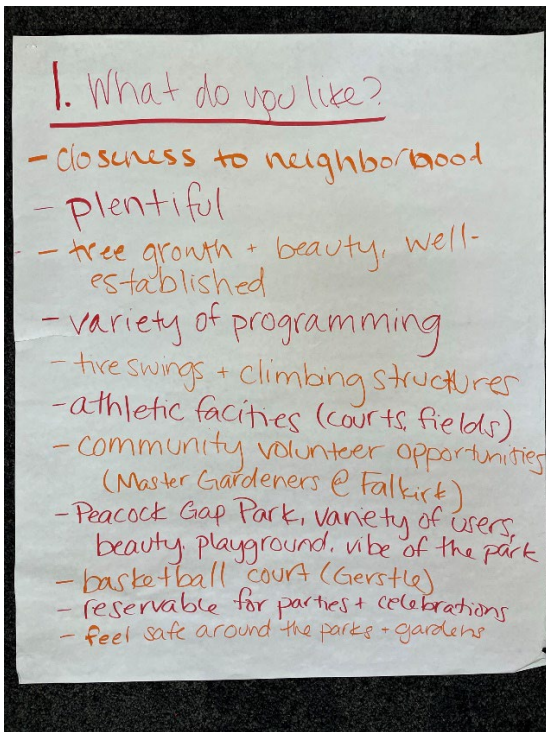 1. What do you like?
- closeness to neighborhood
- plentiful
- tree growth + beauty, well-
established
- variety of programming
- tire swings + climbing structures
- athletic facities (courts, fields)
- community volunteer opportunities
(Master Gardeners @ Falkirk)
- Peacock Gap Park, variety of users,
beauty, playground, vibe of the park
- basketball court (Gerstle)
- reservable for parties + celebrations
- feel safe around the parks + gardens